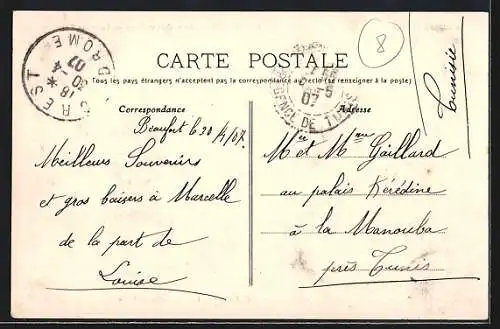 8
CREST DROME
18 * 30 -4 07
CARTE POSTALE
Tous les pays étrangers n'acceptent pas la correspondance au recto (se renseigner à la poste)
Correspondance
Adresse
07
DE
Tunisie
Beaufort le 30/4/07.
Meilleurs Souvenirs
et gros baisers à Marcelle
de la part de
Louise
M et Mme Gaillard
au palais Kérédine
à la Manouba
près Tunis